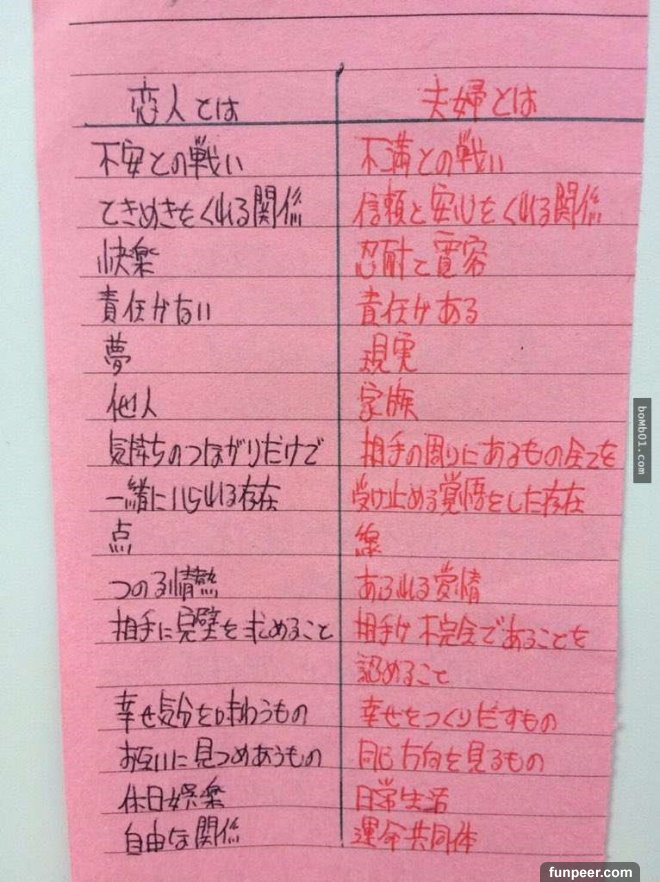 恋人とは 夫婦とは
不安との戦い 不満との戦い
ときめきをくれる関係 信頼と安心をくれる関係
快楽 忍耐と寛容
責任がない 責任がある
夢 現実
他人 家族
気持ちのつながりだけで 相手の周りにあるもの全てを
一緒にいられる存在 受け止める覚悟をした存在
点 線
つのる情熱 あふれる愛情
相手に完璧を求めること 相手が不完全であることを
認めること
幸せ気分を味わうもの 幸せをつくりだすもの
お互いに見つめあうもの 同じ方向を見るもの
休日娯楽 日常生活
自由な関係 運命共同体
bomb01.com
funpeer.com